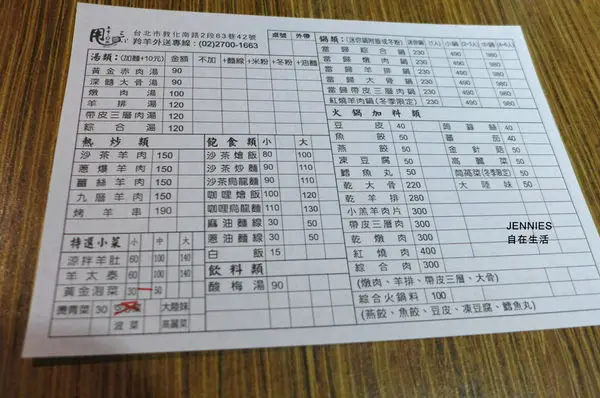 台北市敦化南路2段63巷42號
羚羊外送專線：(02)2700-1663
桌號 外帶
湯類：(加麵+10元) 金額 不加 +麵線 +米粉 +冬粉 +油麵
黃金赤肉湯 90
深髓大骨湯 90
燉肉湯 100
羊排湯 120
帶皮三層肉湯 120
綜合湯 120
熱炒類
沙茶羊肉 150
蔥爆羊肉 150
薑絲羊肉 150
九層羊肉 150
烤羊串 190
飽食類 小 大
沙茶燴飯 80 100
沙茶炒麵 90 110
沙茶烏龍麵 110
咖哩燴飯 100 120
咖哩烏龍麵 110 130
麻油麵線 30 50
蔥油麵線 30 50
白飯 15
飲料類
酸梅湯 90
特選小菜 小 中 大
涼拌羊肚 60 100 140
羊太泰 60 100 140
黃金泡菜 30 50
燙青菜 30 大陸妹
菠菜 高麗菜
鍋類：(迷你鍋附飯或冬粉) (1人) 小鍋(2-3人) 中鍋(4-6人)
當歸綜合鍋 230 490 980
當歸燉肉鍋 230 490 980
當歸羊排鍋 230 490 980
當歸大骨鍋 230 490 980
當歸帶皮三層鍋 230 490 980
紅燒羊肉鍋(冬季限定) 230 490 980
火鍋加料類
豆皮 40 蒟蒻絲 40
魚餃 50 蕃茄 40
燕餃 50 金針菇 50
凍豆腐 50 高麗菜 50
鱈魚丸 50 茼蒿菜(冬季限定) 50
乾大骨 220 大陸妹 50
乾羊排 280
小羔羊肉片 300
帶皮三層肉 300
乾燉肉 300
紅燒肉 400
綜合肉 300
(燉肉、羊排、帶皮三層、大骨)
綜合火鍋料 100
(燕餃、魚餃、豆皮、凍豆腐、鱈魚丸)
JENNIES
自在生活